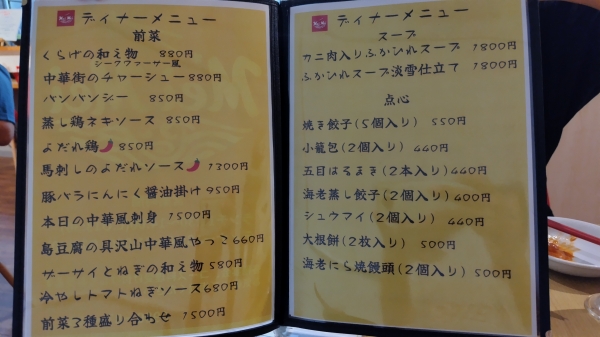 ディナーメニュー
前菜
くらげの和え物 880円
シークワーサー風
中華街のチャーシュー 880円
バンバンジー 850円
蒸し鶏ネギソース 850円
よだれ鶏🌶 850円
馬刺しのよだれソース🌶 1300円
豚バラにんにく醤油掛け 950円
本日の中華風刺身 1500円
島豆腐の具沢山中華風やっこ 660円
ザーサイとねぎの和え物 580円
冷やしトマトねぎソース 680円
前菜3種盛り合わせ 1500円
ディナーメニュー
スープ
カニ肉入りふかひれスープ 1800円
ふかひれスープ淡雪仕立て 1800円
点心
焼き餃子(5個入り) 550円
小籠包(2個入り) 440円
五目はるまき(2本入り) 440円
海老蒸し餃子(2個入り) 400円
シュウマイ(2個入り) 440円
大根餅(2枚入り) 500円
海老にら焼饅頭(2個入り) 500円